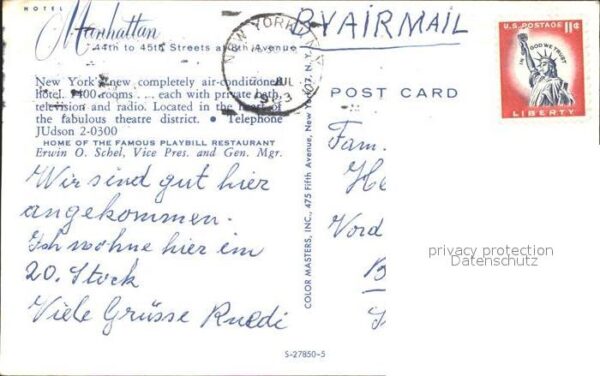 HOTEL
Manhattan
44th to 45th Streets at 8th Avenue
New York's new completely air-conditioned
hotel. 1400 rooms . . . each with private bath,
television and radio. Located in the heart of
the fabulous theatre district. • Telephone
JUdson 2-0300
HOME OF THE FAMOUS PLAYBILL RESTAURANT
Erwin O. Schel, Vice Pres. and Gen. Mgr.
Wir sind gut hier
angekommen.
Ich wohne hier im
20. Stock
Viele Grüsse Ruedi
S-27850-5
COLOR MASTERS, INC., 475 Fifth Avenue, New York 17, N.Y.
NEW YORK, N.Y.
JUL
BY AIR MAIL
POST CARD
U.S. POSTAGE 11¢
IN GOD WE TRUST
LIBERTY
Fam.
He
Vord
B
privacy protection
Datenschutz